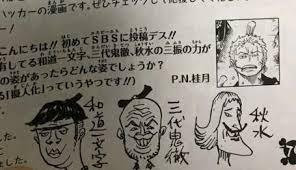 ハッカーの漫画です。ぜひチェックして
こんにちは!! 初めてSBSに投稿デス!!
有してる和道一文字、三代鬼徹、秋水の三振の力が
の姿があったらどんな姿でしょうか?
P.N.桂月
「擬人化」っていうやつです!!)
和道一文字
三代鬼徹
秋水